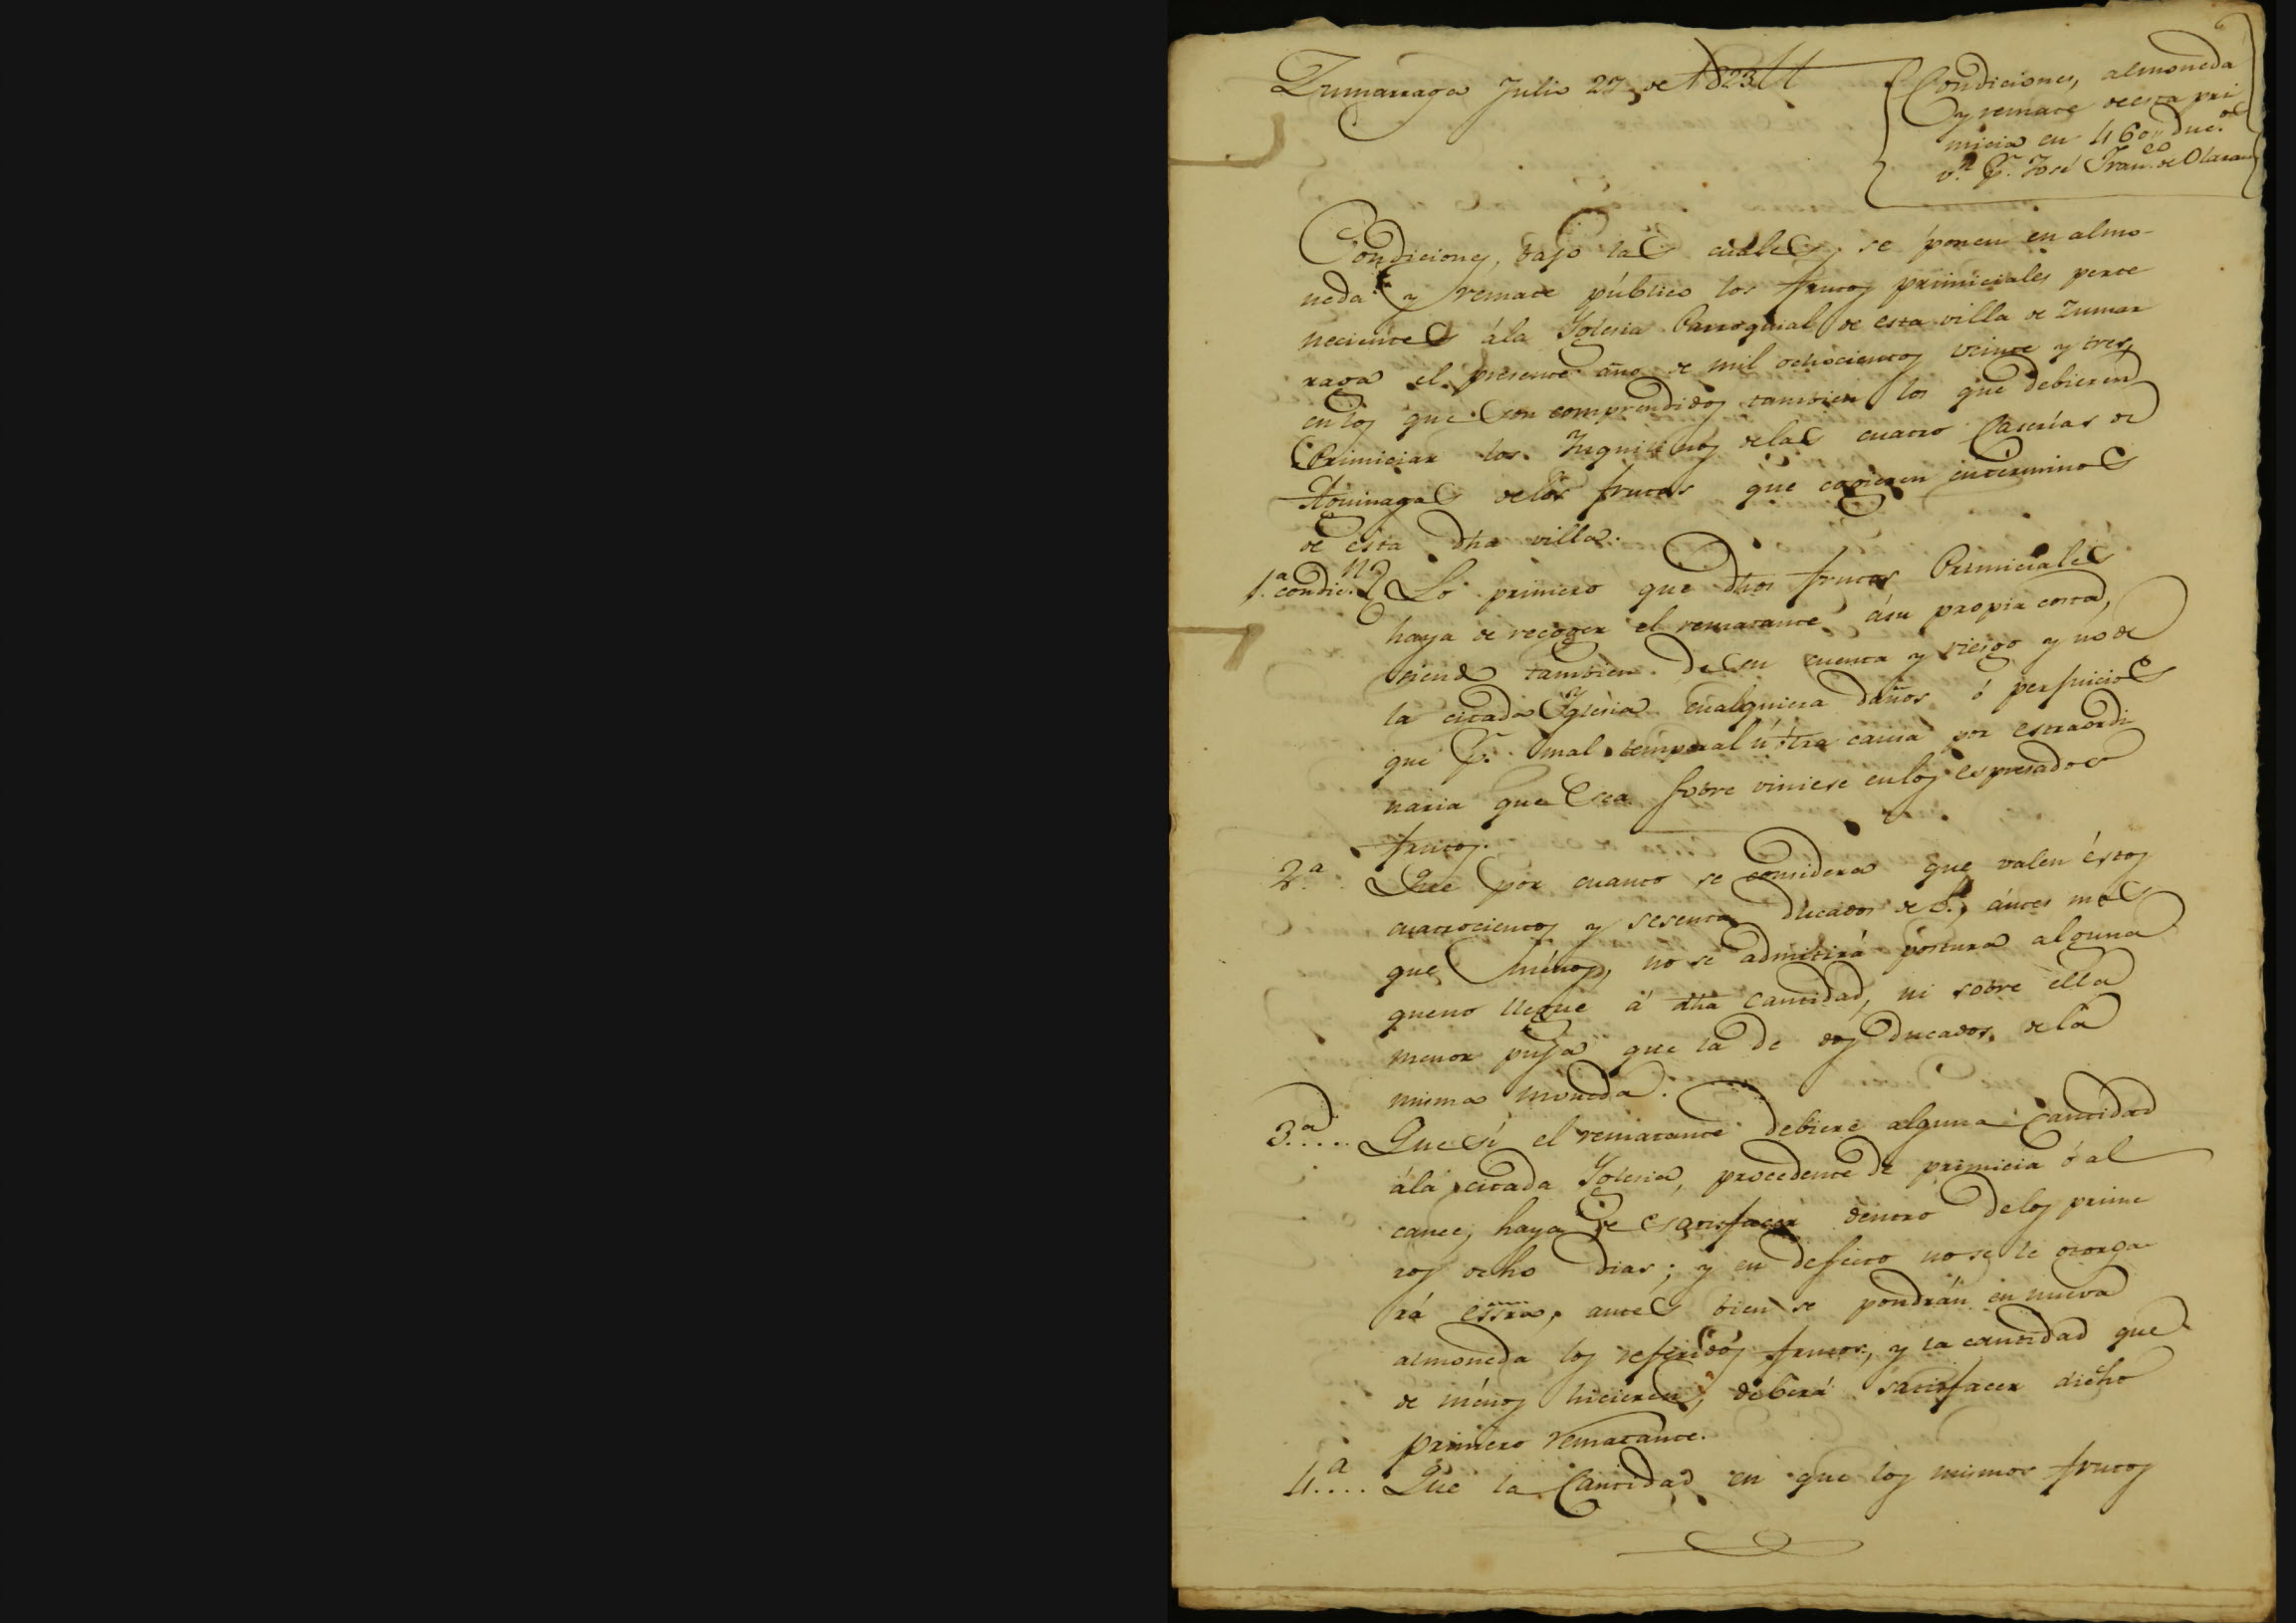 Zumarraga Julio 27 de 1823
Condiciones, almoneda
y remate de esta pri
micia en 460 duc.os
v.n p.r José Fran.co de Olaran
Condiciones, bajo las cuales se ponen en almo-
neda y remate público los frutos primiciales perte
necientes á la Yglesia Parroquial de esta villa de Zumar
raga el presente año de mil ochocientos veinte y tres,
en los que son comprendidos tambien los que debieren
Primiciar los Inquilinos de las cuatro Caserias de
Aguinagas de los frutos que cogieren en terminos
de esta dha villa.
1.a condic.n Lo primero que dhos frutos Primiciales
haya de recoger el rematante á su propia costa,
siendo tambien de su cuenta y riesgo y no de
la citada Yglesia cualquiera daños ó perjuicios
que p.r mal temporal ú otra causa por estraordi
naria que sea sobre viniese en los espresados
frutos.
2.a Que por cuanto se considera que valen éstos
cuatrocientos y sesenta ducados de v.n, ántes mas
que ménos, no se admitirá postura alguna
que no llegue á dha cantidad, ni sobre ella
menor puja que la de dos ducados de la
misma moneda.
3.a.... Que si el rematante debiere alguna cantidad
á la citada Yglesia, procedente de primicia ó al
cance, haya de satisfacer dentro de los prime
ros ocho dias; y en defecto no se le otorga
rá essra, antes bien se pondrán en nueva
almoneda los referidos frutos, y la cantidad que
de ménos hicieren, deberá satisfacer dicho
primero rematante.
4.a.... Que la Cantidad en que los mismos frutos